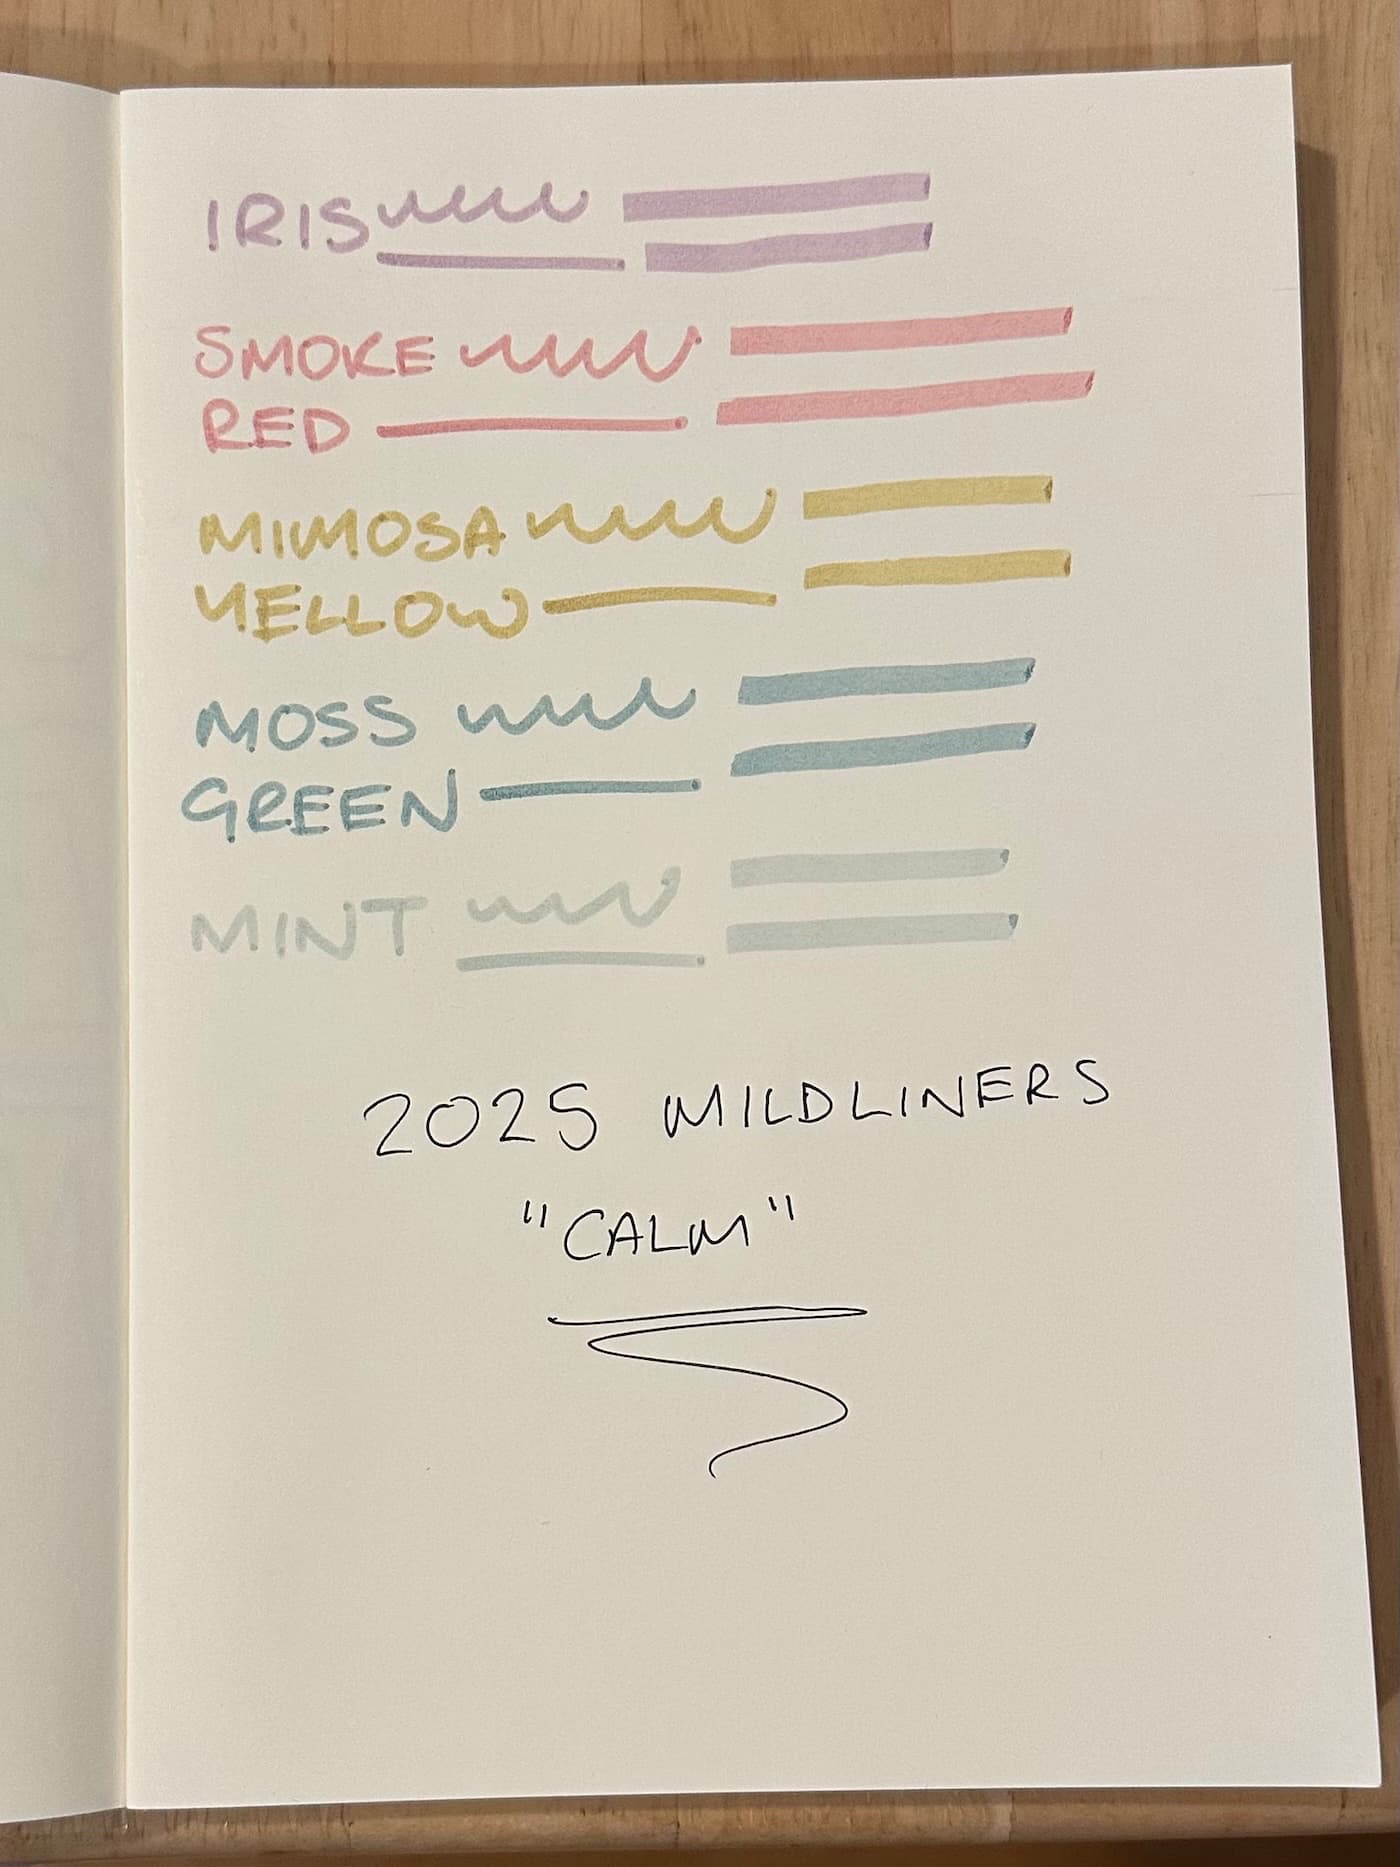 IRIS
SMOKE
RED
MIMOSA
YELLOW
MOSS
GREEN
MINT
2025 MILDLINERS
"CALM"